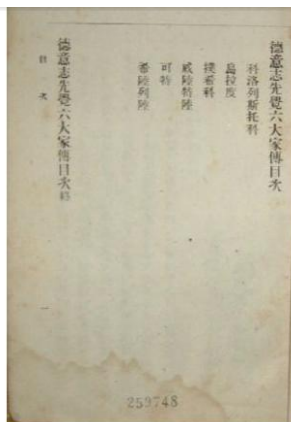 德意志先覺六大家傳目次
科洛列斯托科
烏拉度
撲希科
威陸特陸
可特
希陸列陸
德意志先覺六大家傳目次終
目次
一
259748